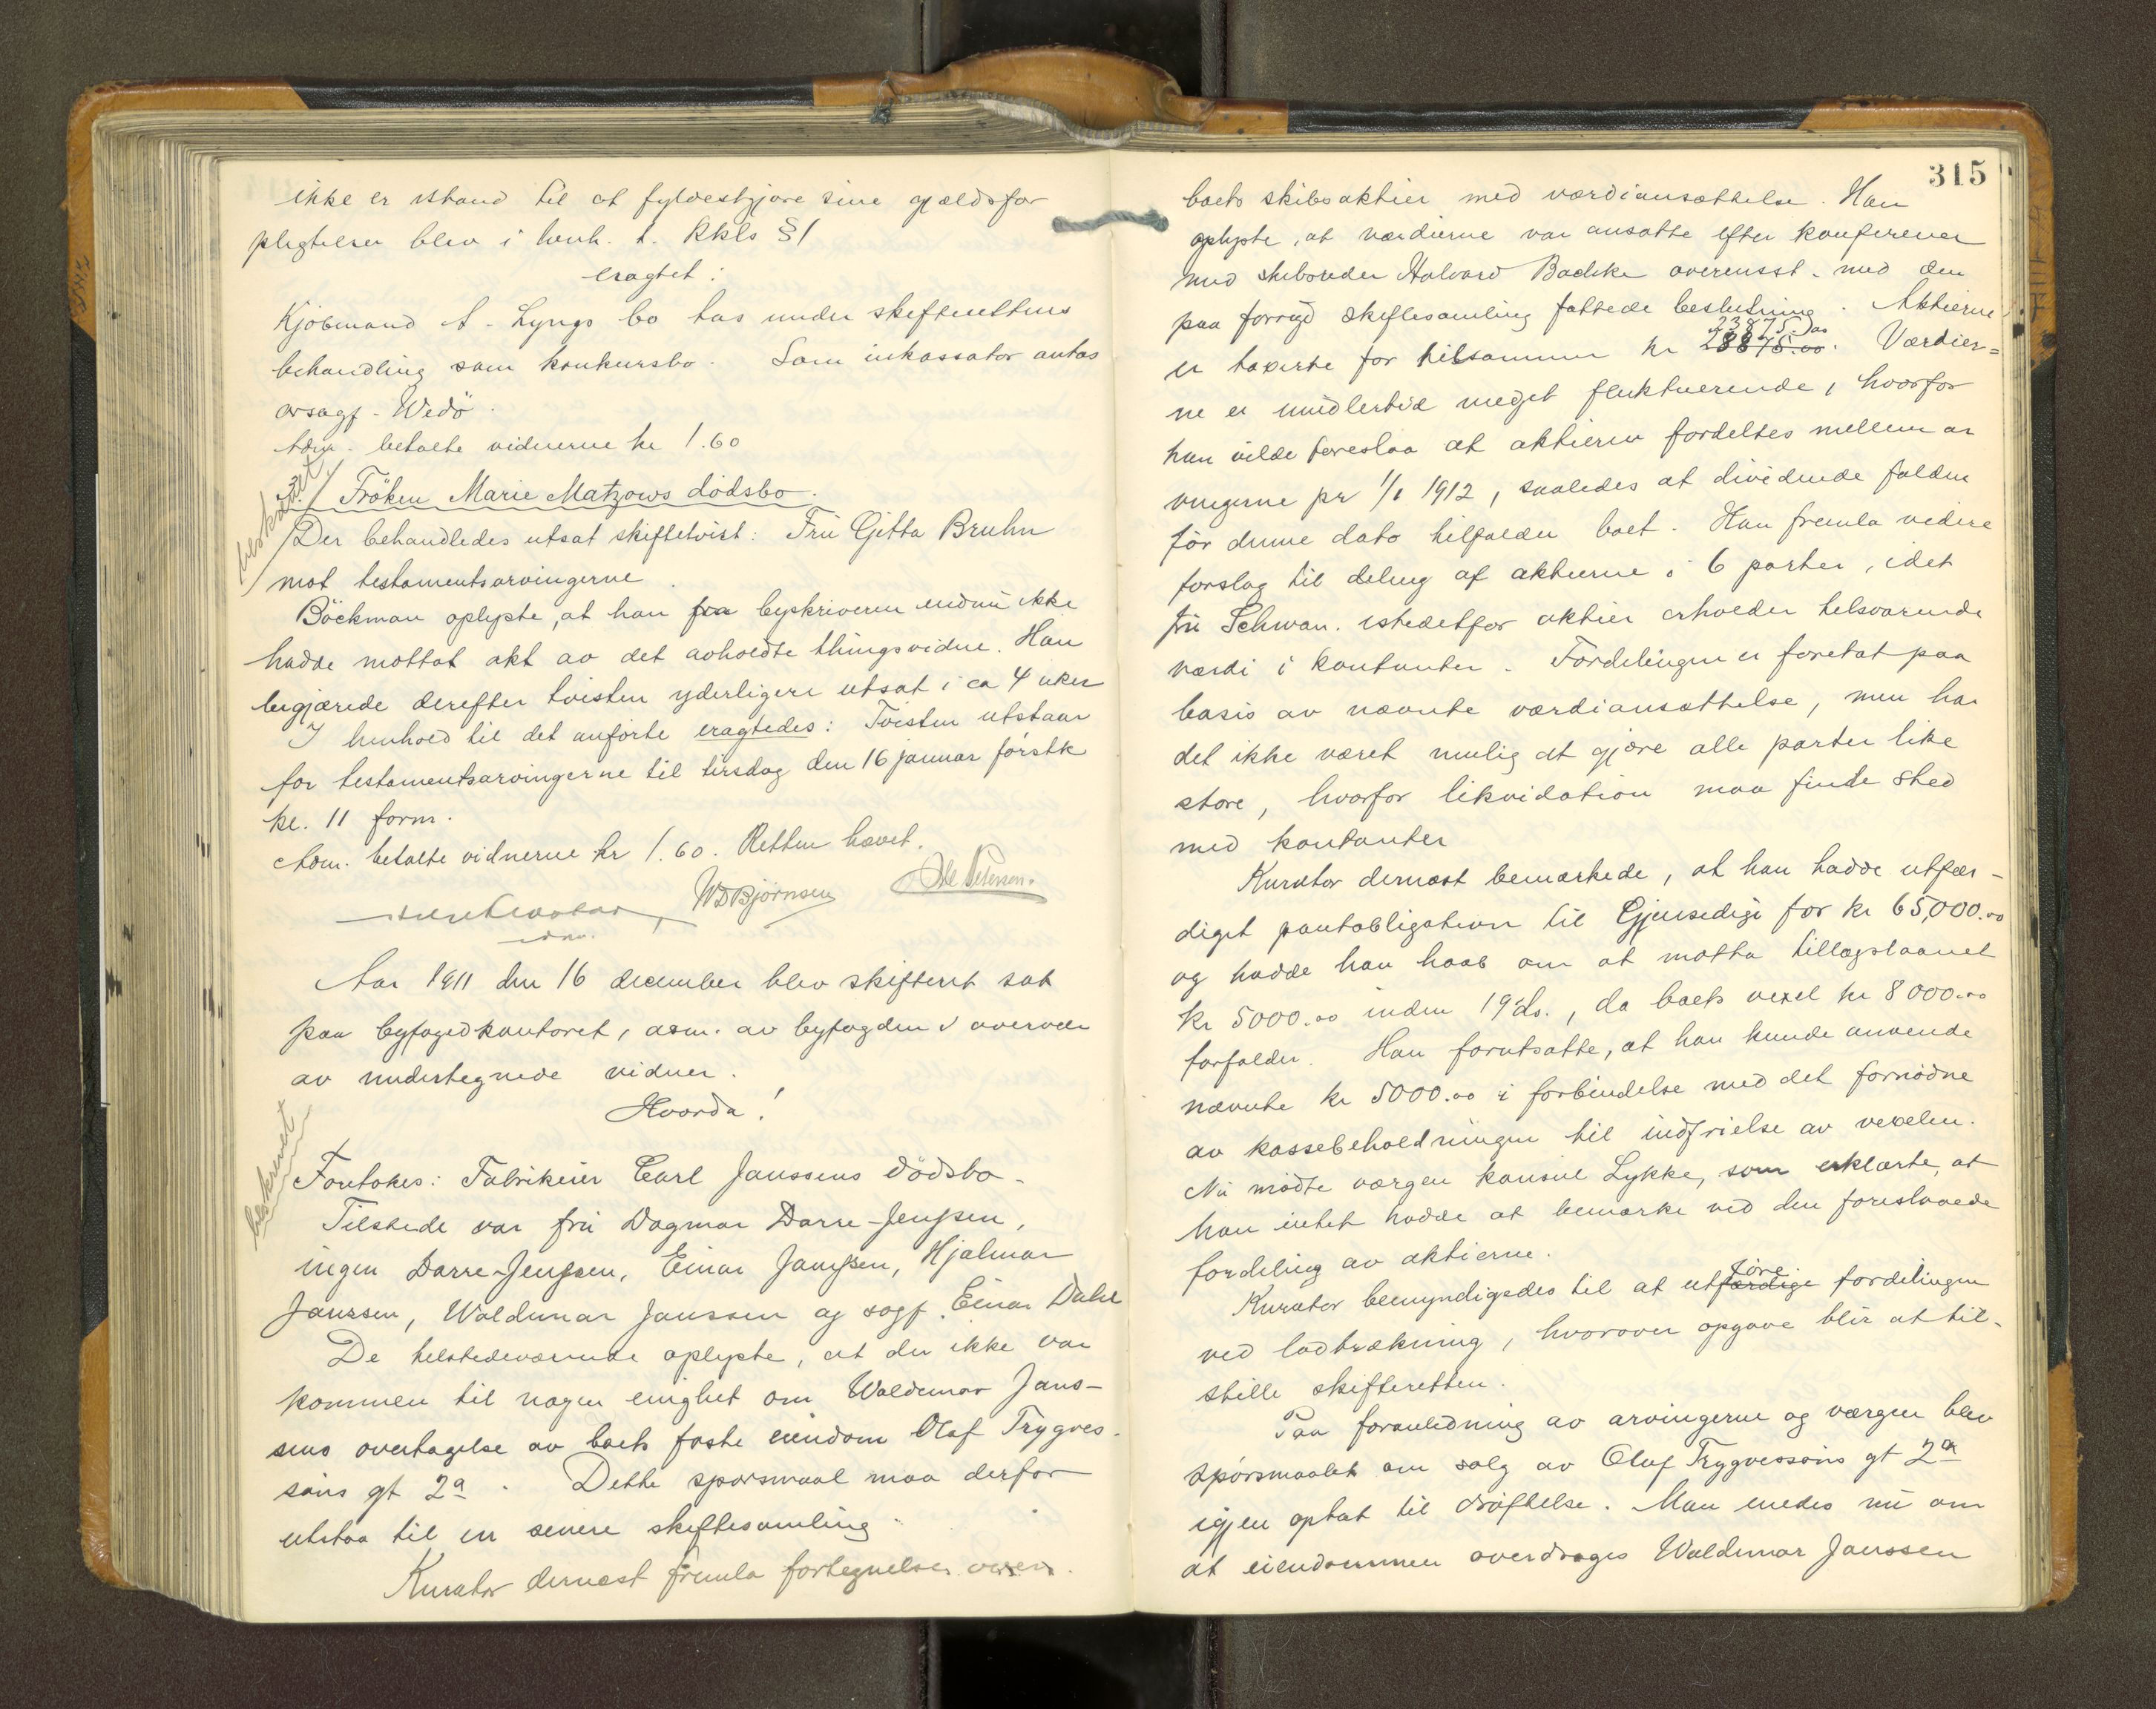 ikke er istand til at fyldestgjøre sine gjældsfor
pligtelser blev i henh. t. kkls §1
eragtet:
Kjøbmand A. Lyngs bo tas under skifterettens
behandling som konkursbo. Som inkassator antas
orsagf. Wedö.
Adm. betalte vidnerne kr 1.60
beskrevet
3. Fröken Marie Matzows dödsbo.
Der behandledes utsat skiftetvist: Fru Gitta Bruhn
mot testamentsarvingerne
Böckman oplyste, at han fra byskriveren endnu ikke
hadde mottat akt av det avholdte thingsvidne. Han
begjærede derefter tvisten yderligere utsat i ca 4 uker
I henhold til det anførte eragtedes: Tvisten utstaar
for testamentsarvingerne til tirsdag den 16 januar førstk
kl. 11 form.
Adm. betalte vidnerne kr 1.60. Retten hævet.
WDBjörnsen Ole Petersen.
Aar 1911 den 16 december blev skifteret sat
paa byfogedkontoret, adm. av byfogden i overvær
av undertegnede vidner.
Hvorda!
beskrevet
Foretokes: Fabrikeier Carl Janssens dödsbo.
Tilstede var fru Dagmar Darre-Jenssen,
ingen Darre-Jenssen, Einar Janssen, Hjalmar
Janssen, Waldemar Janssen og sagf. Einar Dahl
De tilstedeværende oplyste, at der ikke var
kommen til nogen enighet om Waldemar Jans-
sens overtagelse av boets faste eiendom Olaf Trygves-
søns gt 2a. Dette spørsmaal maa derfor
utstaa til en senere skiftesamling
Kurator dernæst fremla fortegnelse over
315
boets skibsaktier med værdiansættelse. Han
oplyste, at værdierne var ansatte efter konferencer
med skibsreder Halvard Bachke overensst. med den
paa forrige skiftesamling fattede beslutning. Aktierne
er taxerte for tilsammen kr 28875.00. Værdier=
23875.00
ne er imidlertid meget fluktuerende, hvorfor
han vilde foreslaa at aktierne fordeltes mellem ar
vingerne pr 1/1 1912, saaledes at dividende falden
för denne dato tilfalder boet. Han fremla videre
forslag til deling af aktierne i 6 parter, idet
fru Schwan. istedetfor aktier erholder tilsvarende
værdi i kontanter. Fordelingen er foretat paa
basis av nævnte værdiansættelse, men har
det ikke været mulig at gjøre alle parter like
store, hvorfor likvidation maa finde sted
med kontanter
Kurator dernæst bemærkede, at han hadde utfær-
diget pantobligation til Gjensidige for kr 65,000.00
og hadde han haab om at motta tillægslaanet
kr 5000.00 inden 19 ds., da boets vexel kr 8000.00
forfalder. Han forutsatte, at han kunde anvende
nævnte kr 5000.00 i forbindelse med det fornødne
av kassebeholdningen til indfrielse av vexelen.
Nu mödte værgen konsul Lykke, som erklærte, at
han intet hadde at bemærke ved den foreslaaede
fordeling av aktierne.
Kurator bemyndigedes til at utfærdige fordelingen
före
ved lodtrækning, hvorover opgave blir at til-
stille skifteretten.
Paa foranledning av arvingerne og værgen blev
spørsmaalet om salg av Olaf Trygvessøns gt 2a
igjen optat til dröftelse. Man enedes nu om
at eiendommen overdrages Waldemar Janssen